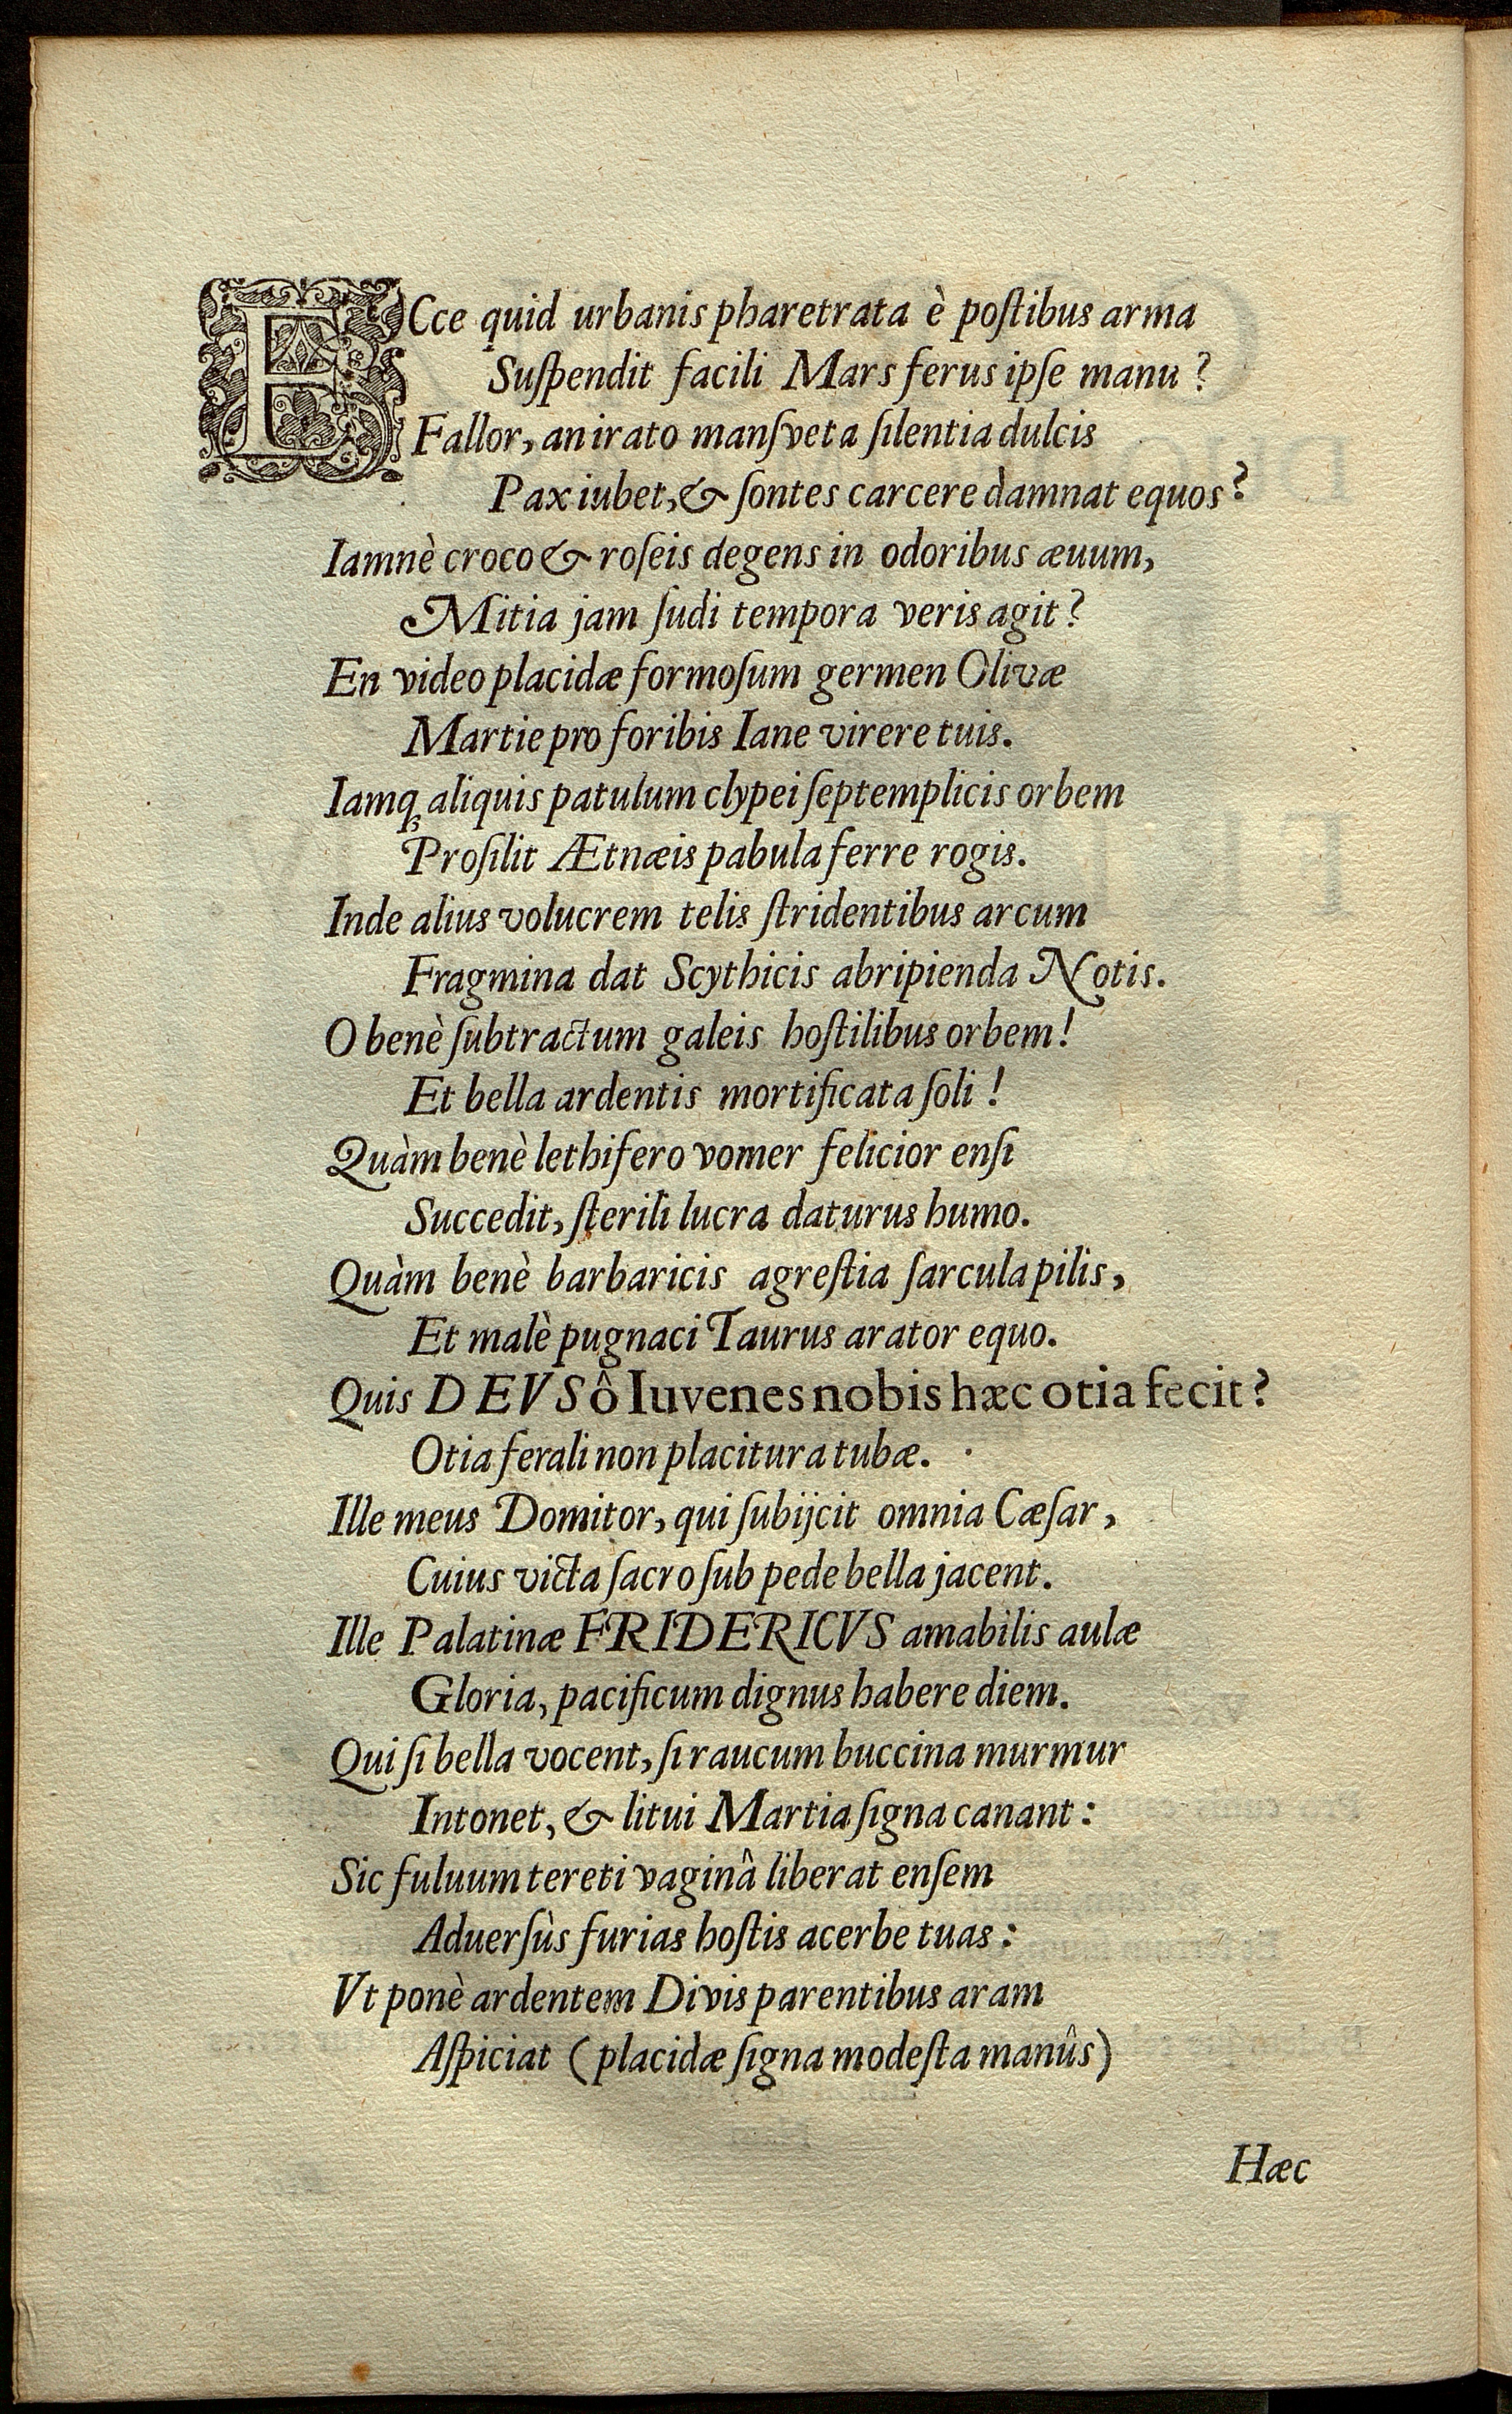 ECce quid urbanis pharetrata è poſtibus arma
Suſpendit facili Mars ferus ipſe manu?
Fallor, an irato manſveta ſilentia dulcis
Pax iubet, & ſontes carcere dàmnat equos?
Iamnè croco & roſeis degens in odoribus æuum,
Mitia jam ſudi tempora veris agit?
En video placidæ formoſum germen Olivæ
Martie pro foribis Iane virere tuis.
Iamq́ꝫ aliquis patulum clypei ſeptemplicis orbem
Proſilit Ætnæis pabula ferre rogis.
Inde alius volucrem telis ſtridentibus arcum
Fragmina dat Scythicis abripienda Notis.
O benè ſubtractum galeis hoſtilibus orbem!
Et bella ardentis mortificata ſoli!
Quàm benè lethifero vomer felicior enſi
Succedit, ſterili lucra daturus humo.
Quàm benè barbaricis agreſtia ſarcula pilis,
Et malè pugnaci Taurus arator equo.
Quis DEVS ô Iuvenes nobis hæc otia fecit?
Otia ferali non placitura tubæ.
Ille meus Domitor, qui ſubijcit omnia Cæſar,
Cuius victa ſacro ſub pede bella jacent.
Ille Palatinæ FRIDERICVS amabilis aulæ
Gloria, pacificum dignus habere diem.
Qui ſi bella vocent, ſi raucum buccina murmur
Intonet, & litui Martia ſigna canant:
Sic fuluum tereti vaginâ liberat enſem
Aduerſùs furias hoſtis acerbe tuas:
Vt ponè ardentem Divis parentibus aram
Aſpiciat (placidæ ſigna modeſta manûs)
Hæc